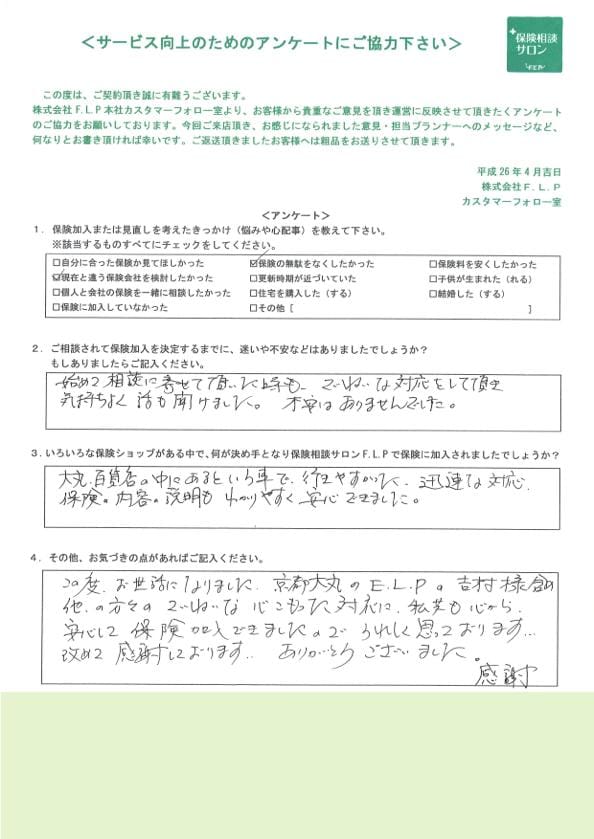 ＜サービス向上のためのアンケートにご協力下さい＞
保険相談
サロン
F.L.P
この度は、ご契約頂き誠に有難うございます。
株式会社F.L.P本社カスタマーフォロー室より、お客様から貴重なご意見を頂き運営に反映させて頂きたくアンケート
のご協力をお願いしております。今回ご来店頂き、お感じになられました意見・担当プランナーへのメッセージなど、
何なりとお書き頂ければ幸いです。ご返送頂きましたお客様へは粗品をお送りさせて頂きます。
平成26年4月吉日
株式会社F.L.P
カスタマーフォロー室
＜アンケート＞
1．保険加入または見直しを考えたきっかけ（悩みや心配事）を教えて下さい。
※該当するものすべてにチェックをしてください。
□自分に合った保険か見てほしかった ☑保険の無駄をなくしたかった □保険料を安くしたかった
☑現在と違う保険会社を検討したかった □更新時期が近づいていた □子供が生まれた（れる）
□個人と会社の保険を一緒に相談したかった □住宅を購入した（する） □結婚した（する）
□保険に加入していなかった □その他［ ］
2．ご相談されて保険加入を決定するまでに、迷いや不安などはありましたでしょうか？
もしありましたらご記入ください。
始めて相談に寄せて頂いた時も、ていねいな対応をして頂き
気持ちよく話も聞けました。不安はありませんでした。
3．いろいろな保険ショップがある中で、何が決め手となり保険相談サロンF.L.Pで保険に加入されましたでしょうか？
大丸百貨店の中にあるという事で、行きやすかった、迅速な対応、
保険の内容の説明もわかりやすく安心できました。
4．その他、お気づきの点があればご記入ください。
この度、お世話になりました、京都大丸のF.L.Pの吉村様含め
他の方々のていねいな心こもった対応に、私共も心から、
安心して保険加入できましたのでうれしく思っております…
改めて感謝しております… ありがとうございました。
感謝